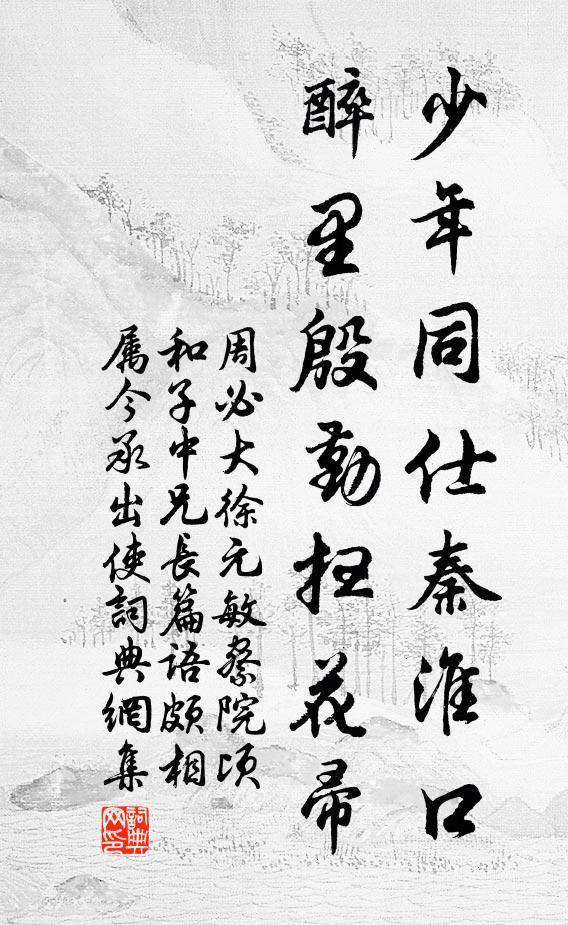 少年同仕秦淮口
醉里殷勤扫花帚
周必大徐元敏察院顷
和子中兄長篇语颇相
属今承出使詞典網集
詞典网印